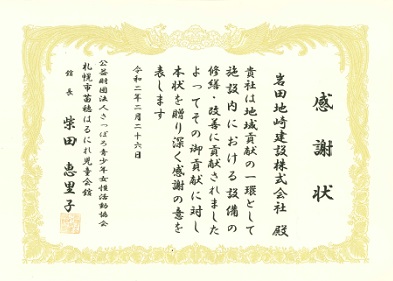 感謝状
岩田地崎建設株式会社 殿
貴社は地域貢献の一環として
施設内における設備の
修繕・改善に貢献されました
よってその御貢献に対し
本状を贈り深く感謝の意を
表します
令和二年二月二十六日
公益財団法人さっぽろ青少年女性活動協会
札幌市苗穂はるにれ児童会館
館長 柴田 恵里子